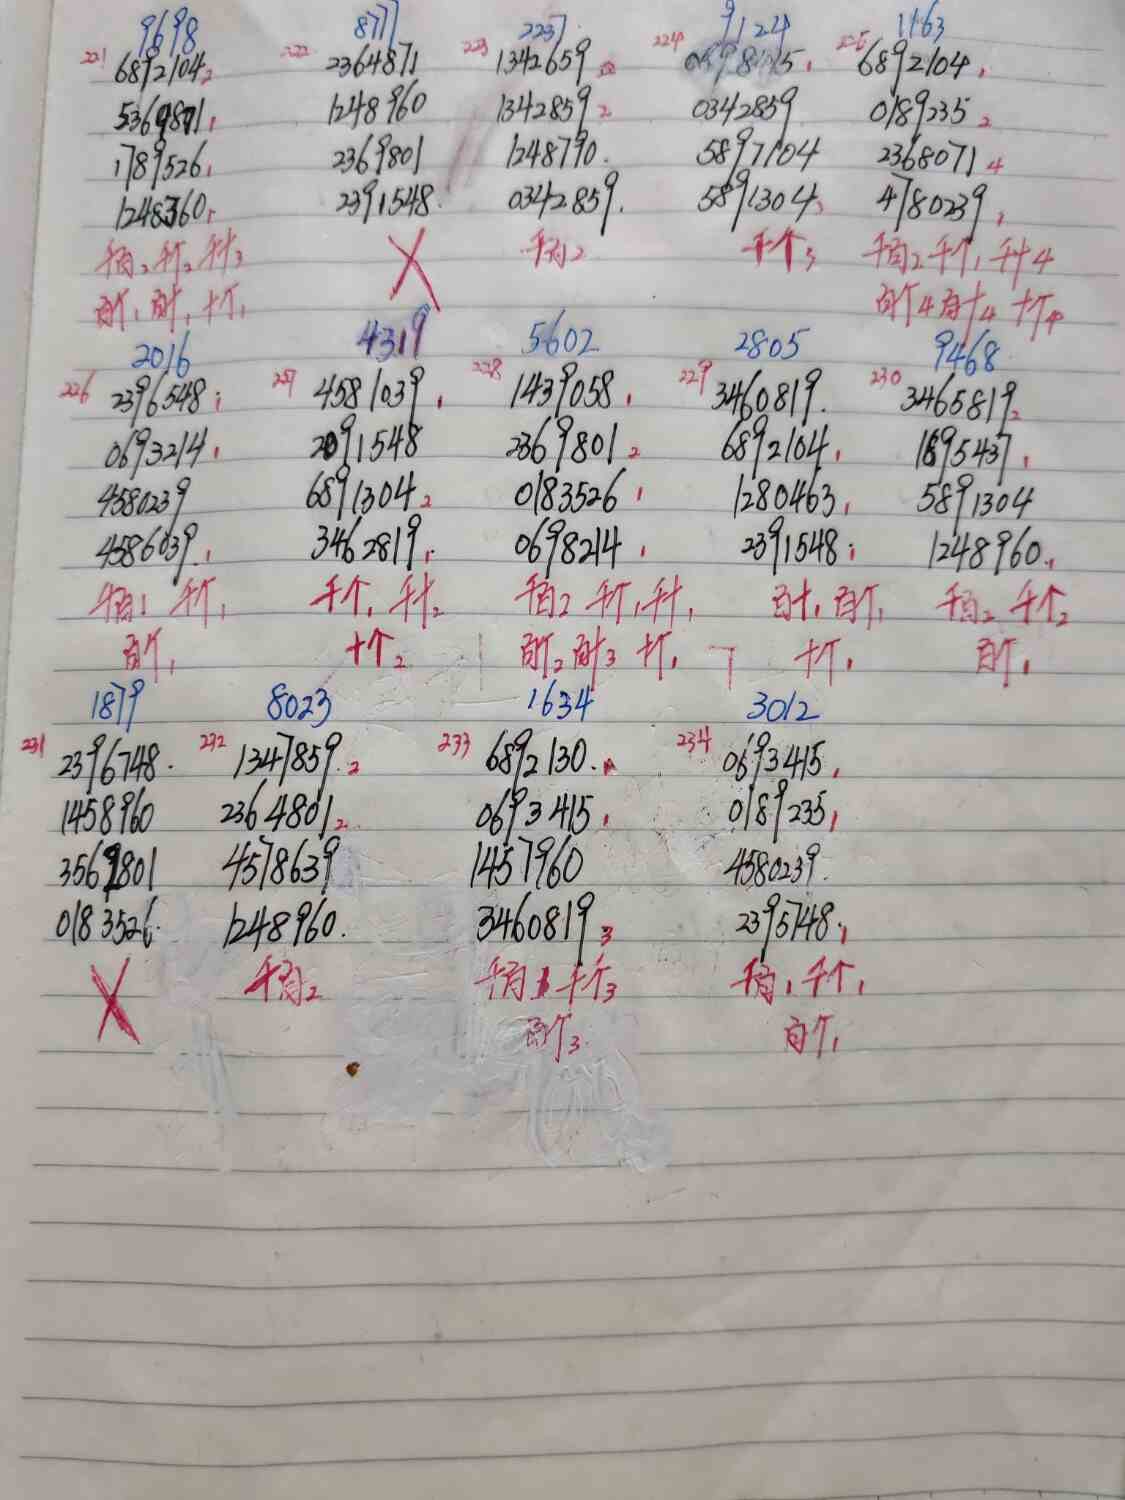 9698 8777 2237 9124 1163
221 6892104 2 222 2364871 223 1342659 224 225 6892104 1
5369871 1 1248960 1342859 2 0342859 0189235 2
1789526 1 2369801 1248790. 5897104 2368071 4
1248360 1 2391548. 0342859. 5891304 3 4780239 1
千百2 千个2 千十3 X 千百2 千个3 千百2 千个1 千十4
百个1 百十1 十个1 百个4 百十4 十个4
2016 4319 5602 2805 9468
226 2396548 1 227 4581039 1 228 1439058 1 229 3460819. 230 3465819 2
0693214 1 2091548 2369801 2 6892104 1 1895437 1
4580239 6891304 2 0183526 1 1280463 1 5891304
4586039 1 3462819 1 0698214 1 2391548 1 1248960 1
千百1 千个1 千个1 千十2 千百2 千个1 千十1 百十1 百个1 千百2 千个2
百个1 十个2 百个2 百十3 十个1 十个1 百个1
1879 8023 1634 3012
231 2396748. 232 1347859 2 233 6892130. 234 0693415 1
1458960 2364801 2 0693415 1 0189235 1
3569801 4578639 1457960 4580239.
0183526. 1248960. 3460819 3 2395748 1
X 千百2 千百1 千个3 千百1 千个1
百个3 百个1